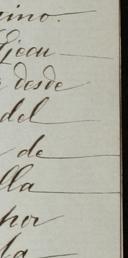 uino.
Ejecu
desde
del
de
lla
por
la